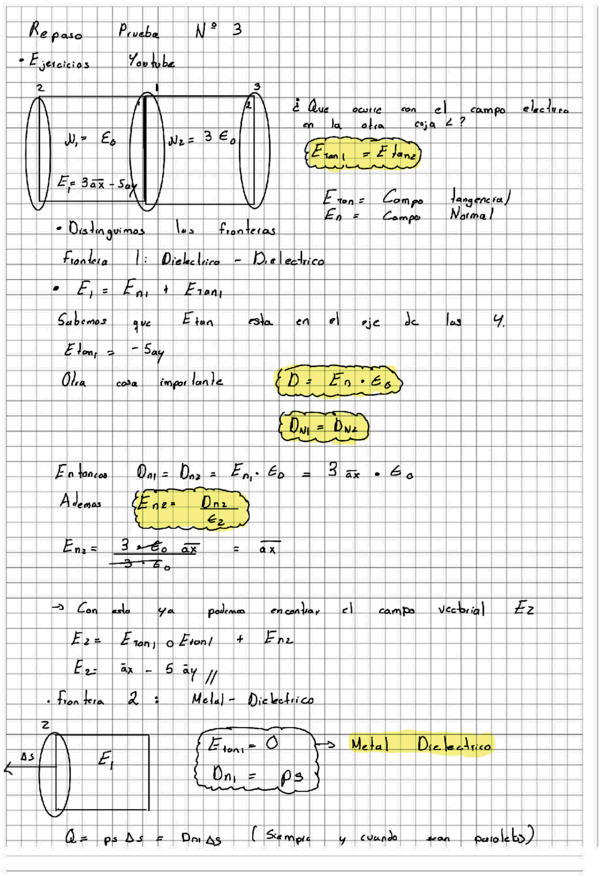 Repaso Prueba N° 3
• Ejercicios Youtube
2 1 3
1 2
N1 = ε0 N2 = 3 ε0
E1 = 3ax - 5ay
¿ Que ocurre con el campo electrico
en la otra caja 2 ?
Etan1 = Etan2
Etan = Campo tangencial
En = Campo Normal
• Distinguimos las fronteras
Frontera 1: Dielectrico - Dielectrico
• E1 = En1 + Etan1
Sabemos que Etan esta en el eje de las y.
Etan1 = -5ay
Otra cosa importante D = En • ε0
DN1 = DN2
Entonces Dn1 = Dn2 = En1 • ε0 = 3 ax • ε0
Ademas En2 = Dn2 / ε2
En2 = 3 • ε0 ax / 3 • ε0 = ax
→ Con esto ya podemos encontrar el campo vectorial E2
E2 = Etan1 o Etan1 + En2
E2 = ax - 5 ay //
• Frontera 2 : Metal - Dielectrico
2
Δs E1
Etan1 = 0 → Metal Dielectrico
Dn1 = ρs
Q = ρs Δs = Dn1 Δs ( Siempre y cuando sean paralelos)